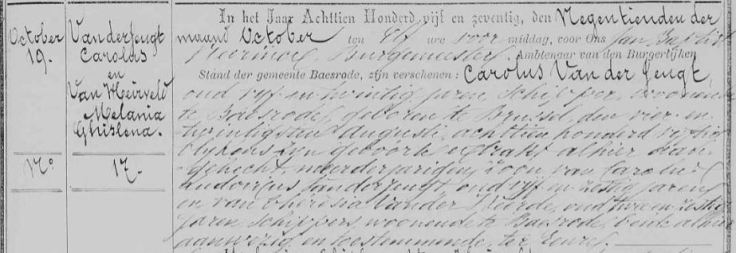 October
19.
Vanderjeugt
Carolus
en
Van Heirveld
Melania
Ghislena.
N.o
17.
In het Jaar Achttien Honderd, vijf en zeventig, den Negentienden der
maand October ten elf ure voor middag, voor Ons Jan Baptist
Burgemeester, Ambtenaar van den Burgerlijken
Stand der gemeente Baesrode, zijn verschenen: Carolus Van der Jeugt,
oud vijf en twintig jaren, schipper, woonende
te Baesrode, geboren te Brussel den vier en
twintigsten Augusti, achttien honderd vijftig
blijkens zijn geboorte extrakt alhier aan-
gehecht, meerderjarigen zoon van Carolus
Ludovicus Vanderjeugt, oud vijf en zestig jaren
en van Theresia Vander oud twee en zestig
jaren, schippers, woonende te Baesrode, beide alhier
aanwezig en toestemmende, ter eenre.